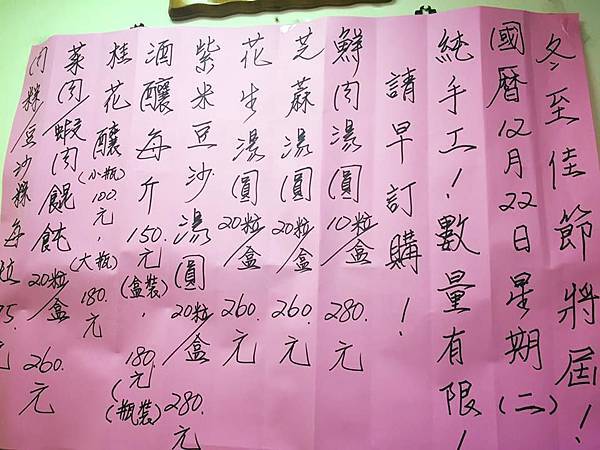 冬至佳節將屆！
國曆12月22日星期（二）
純手工！數量有限！
請早訂購！
鮮肉湯圓10粒/盒 280.元
芝蔴湯圓20粒/盒 260.元
花生湯圓20粒/盒 260.元
紫米豆沙湯圓20粒/盒 280.元
酒釀每斤150.元(盒裝), 180.元(瓶裝)
桂花釀(小瓶)100.元, (大瓶)180.元
菜肉/蝦肉餛飩20粒/盒 260.元
肉粽/豆沙粽每粒 75.元